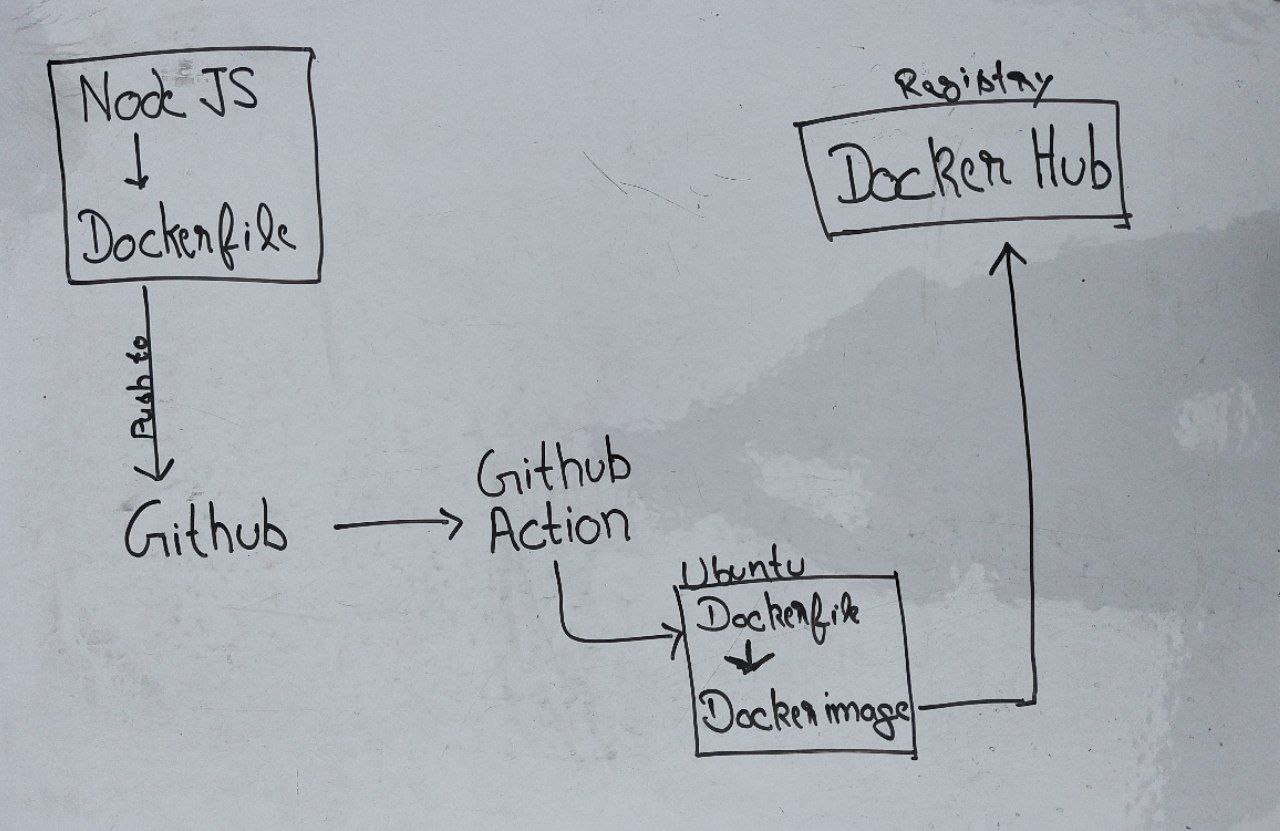 Node JS
Dockerfile
Push to
Github
Github
Action
Ubuntu
Dockerfile
Docker image
Registry
Docker Hub